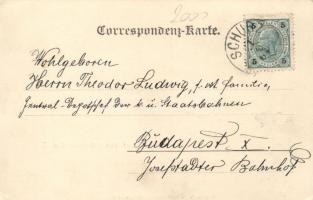 2000
Correspondenz-Karte.
SCHU
5 5
5 5
Wohlgeboren
Herrn Theodor Ludwig, s. wt. Familie,
Zentral-Depotchef der k. u. Staatsbahnen
Budapest X.
Josefstädter Bahnhof